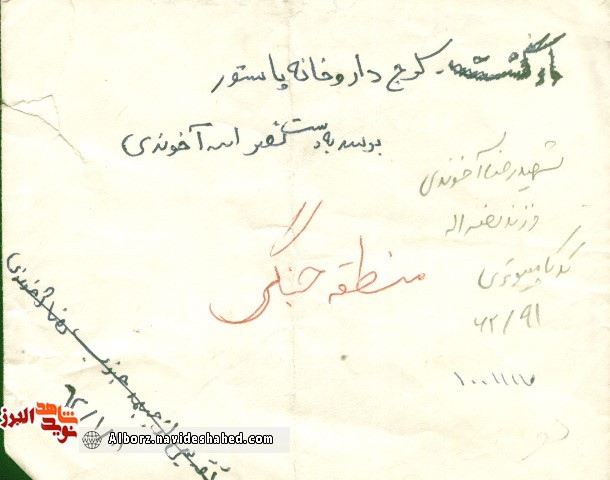 کرج داروخانه پاستور
برسد بدست نصر اله آخوندی
شهید رضا آخوندی
فرزند نصر اله
کد کامپیوتری
۶۲/۹۱
۱۰۰۱۱۱۷
منطقه جنگی
رضا آخوندی
شاهد
نوید
البرز
Alborz.navideshahed.com